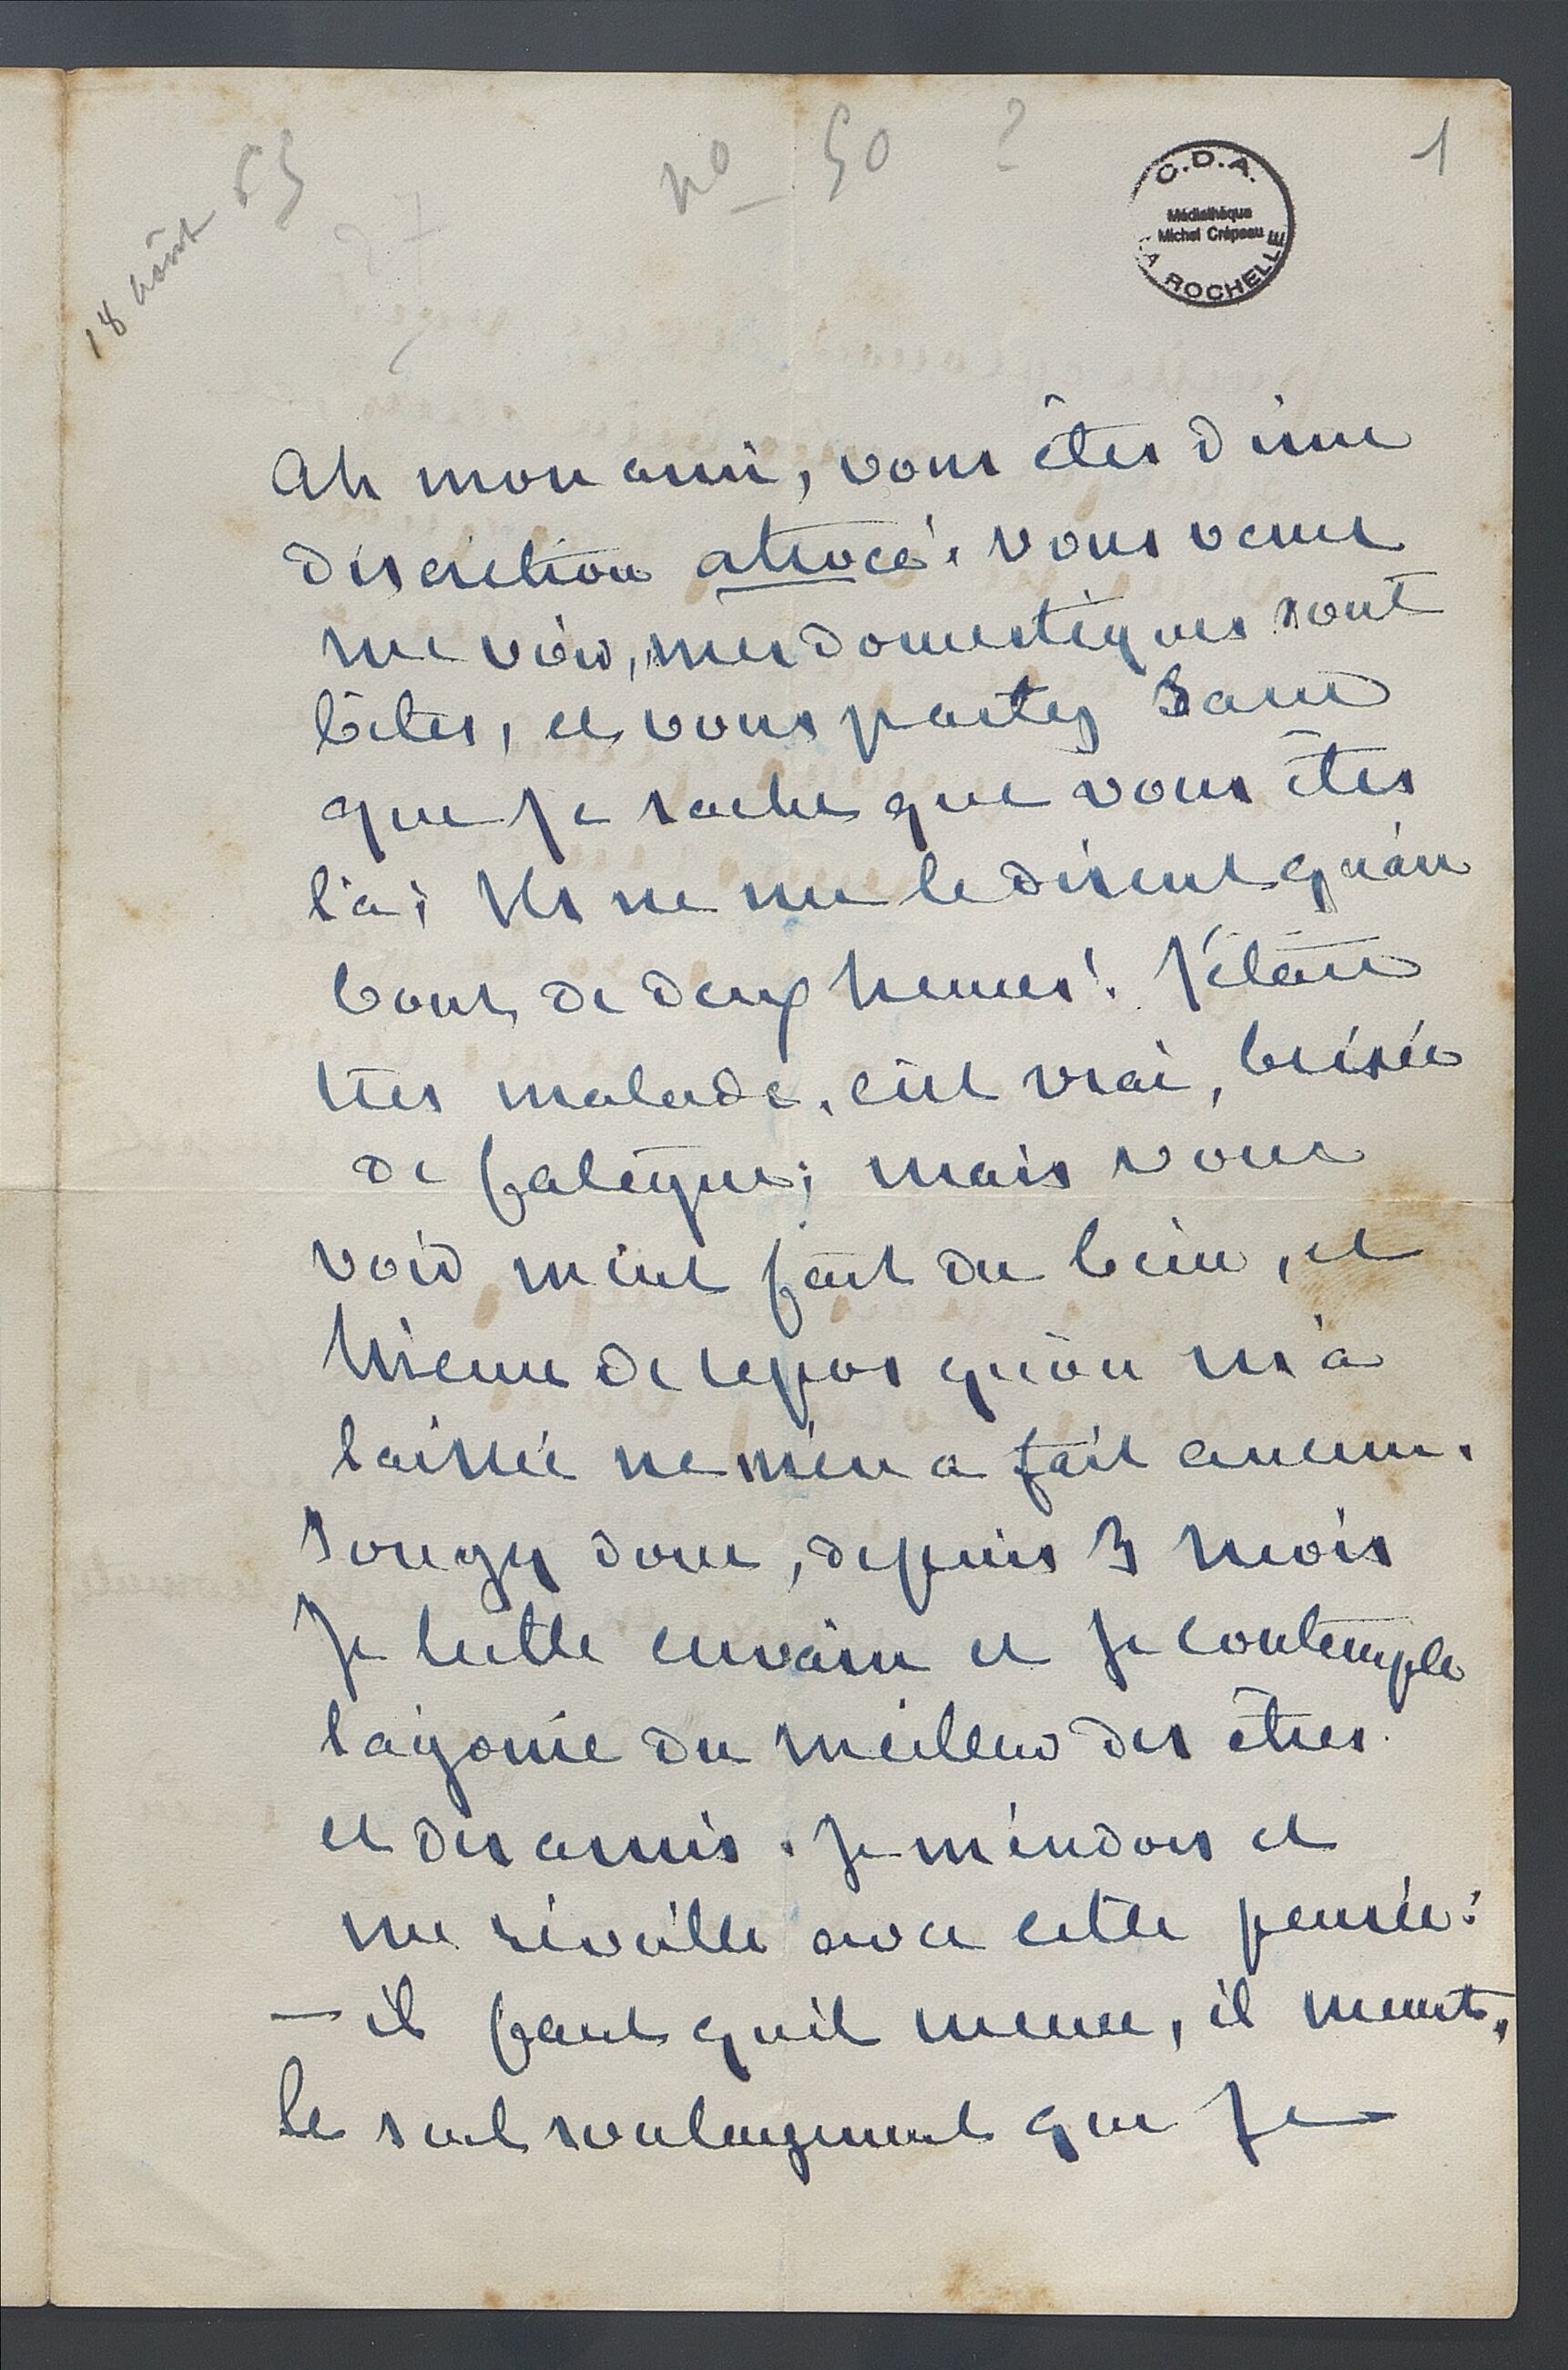 18 août 65
no 50 ?
1
C.D.A.
Médiathèque
Michel Crépeau
LA ROCHELLE
Ah mon ami, vous êtes d'une
discrétion atroce! vous venez
me voir, mes domestiques sont
bêtes, et vous partez sans
que je sache que vous êtes
là; Ils ne me le disent qu'au
bout de deux heures! J'étais
très malade, c'est vrai, brisée
de fatigue; mais vous
voir m'eut fait du bien, et
l'heure de repos qu'on m'a
laissée ne m'en a fait aucun.
Songez donc, depuis 3 mois
Je lutte envain et Je contemple
l'agonie du meilleur des êtres
et des amis. Je m'endors et
me réveille avec cette pensée:
— il faut qu'il meure, il meurt,
le seul soulagement que Je